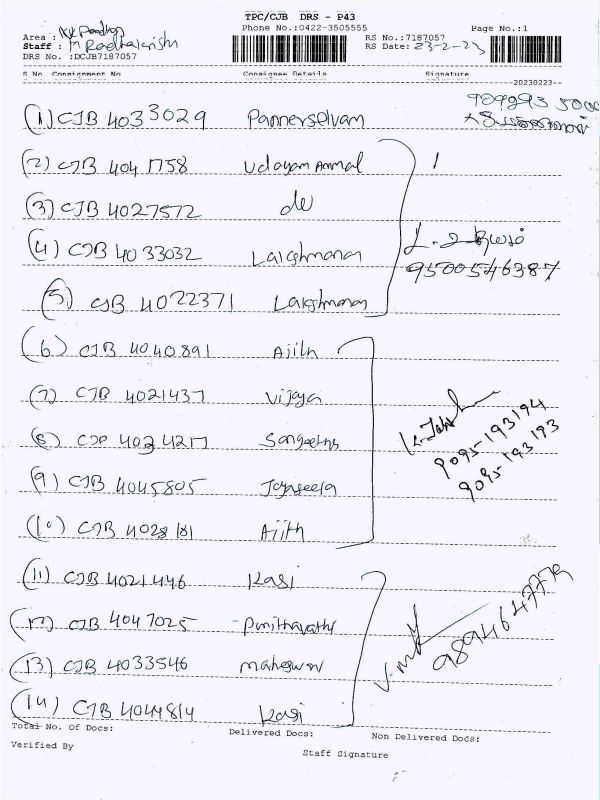 TPC/CJB DRS - P43
Phone No.:0422-3505555
Page No.:1
Area :
Staff : Radhakrishn
RS No.:7187057
RS Date: 23-2-23
DRS No. :DCJB7187057
S No Consignment No Consignee Details Signature
20230223--
(1) CJB 4033029 Pannerselvam
(2) CJB 4041758 Udayam Ammal
(3) CJB 4027572 do
(4) CJB 4033032 Lakshmanan
9500546387
(5) CJB 4022371 Lakshmanan
(6) CJB 4040891 Ajith
(7) CJB 4021437 Vijaya
(8) CJB 4034217 Sangeetha
9095-193194
9095-193193
(9) CJB 4045805 Jayaseela
(10) CJB 4028181 Ajith
(11) CJB 4021446 Kasi
(12) CJB 4047025 Punithavathi
9894647779
(13) CJB 4033546 maheswari
(14) CJB 4044814 Kasi
Total No. Of Docs: Delivered Docs: Non Delivered Docs:
Verified By Staff Signature